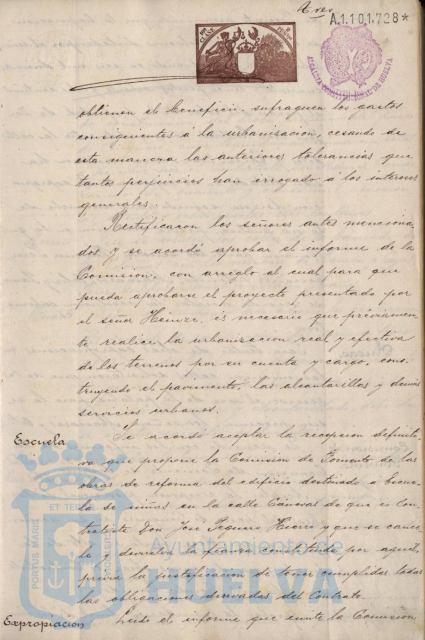 Tres
A.1.101.728*
ALCALDIA CONSTITUCIONAL DE HUELVA
obtienen el beneficio sufraguen los gastos
consiguientes á la urbanizacion, cesando de
esta manera las anteriores tolerancias que
tantos perjuicios han irrogado á los intereses
generales.
Rectificaron los señores antes menciona-
dos y se acordó aprobar el informe de la
Comision, con arreglo al cual para que
pueda aprobarse el proyecto presentado por
el señor es necesario que préviamen-
te realice la urbanizacion real y efectiva
de los terrenos por su cuenta y cargo, cons-
truyendo el pavimento, las alcantarillas y demás
servicios urbanos.
Escuela
Se acordó aceptar la recepcion definiti-
va que propone la Comision de Fomento de las
obras de reforma del edificio destinado á Escue-
la de niñas en la calle Cánovas de que es Con-
tratista Don José y que se cance-
le y devuelva la fianza constituida por aquel,
previa la justificacion de tener cumplidas todas
las obligaciones derivadas del Contrato.
Expropiacion
Leido el informe que emite la Comision
PORTUS MARIS
ET TERRAE
Ayuntamiento de
HUELVA